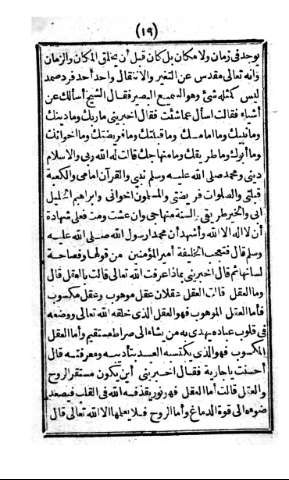 (١٩)
يوجد فى زمان ولا مكان بل كان قبل أن يخلق المكان والزمان
وانه تعالى مقدس عن التغير والانتقال واحد أحد فرد صمد
ليس كمثله شئ وهو السميع البصير فقال الشيخ أسألك عن
أشياء فقالت اسأل عما شئت فقال اخبرينى ما ربك وما دينك
وما نبيك وما امامك وما قبلتك وما فريضتك وما اخوانك
وما أبوك وما طريقك وما منهاجك قالت له الله ربى والاسلام
دينى ومحمد صلى الله عليه وسلم نبيى والقرآن امامى والكعبة
قبلتى والصلوات فريضتى والمسلمون اخوانى وابراهيم الخليل
أبى والخير طريقى والسنة منهاجى وان عشت ومت فعلى شهادة
أن لا اله الا الله وأشهد أن محمدا رسول الله صلى الله عليه
وسلم قال فتعجب الخليفة أمير المؤمنين من قولها وفصاحة
لسانها ثم قال اخبرينى بماذا عرفت الله تعالى قالت بالعقل قال
وما العقل قالت العقل عقلان عقل موهوب وعقل مكسوب
فأما العقل الموهوب فهو العقل الذى خلقه الله تعالى ووضعه
فى قلوب عباده يهدى به من يشاء الى صراط مستقيم وأما العقل
المكسوب فهو الذى يكتسبه العبد بتأدبه ومعرفته قال
أحسنت يا جارية فقال اخبرينى أين يكون مستقر الروح
والعقل قالت أما العقل فهو نور يقذفه الله فى القلب فيصعد
ضوءه الى قوة الدماغ وأما الروح فلا يعلمها الا الله تعالى قال